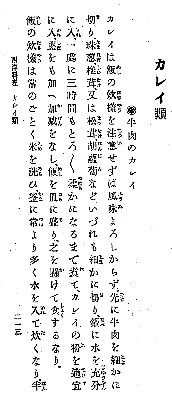 カレイ類
◉牛肉のカレイ
カレイは飯の炊樣を注意せずば風味よろしからず、先に牛肉を細かに
切り球葱椎茸又は松茸胡蘿蔔などいづれも細かに切り鍋に水を充分
に入れ處に三時間もとろ〳〵柔かになるまで煮て、カレイの粉を適宜
に入れ葱をも加へ加減をなし、飯を皿に盛り之を掛けて食するなり、
飯の炊樣は常のごとく米を洗ひ釜に常より多く水を入て炊くなり半
西洋料理 カレイ類
二一三